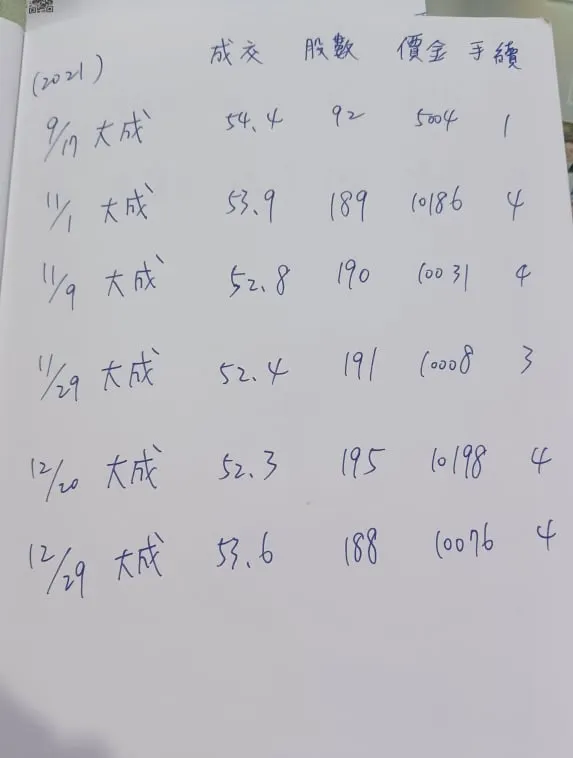 (2021) 成交 股數 價金 手續
9/17 大成 54.4 92 5004 1
11/1 大成 53.9 189 10186 4
11/9 大成 52.8 190 10031 4
11/29 大成 52.4 191 10008 3
12/20 大成 52.3 195 10198 4
12/29 大成 53.6 188 10076 4